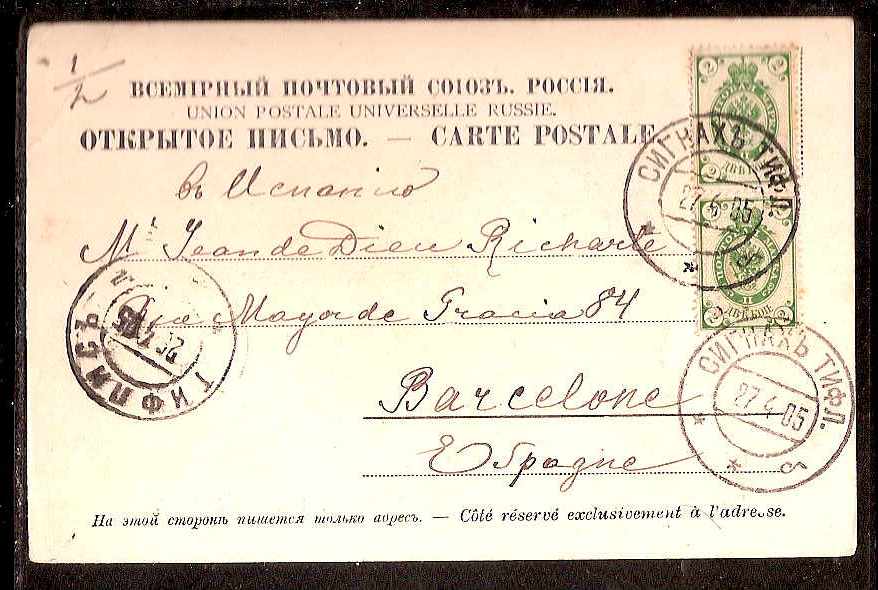 1/2
ВСЕМІРНЫЙ ПОЧТОВЫЙ СОЮЗЪ. РОССІЯ.
UNION POSTALE UNIVERSELLE RUSSIE.
ОТКРЫТОЕ ПИСЬМО. — CARTE POSTALE
въ Испанію
M Jean de Dieu Richarte
Mayor de Gracia 84
Barcelone
Espagne
На этой сторонѣ пишется только адресъ. — Côté réservé exclusivement à l'adresse.
2 2
2 2
СИГНАХЪ ТИФЛ.
27 4 05
СИГНАХЪ ТИФЛ.
27 4 05
ТИФЛИСЪ